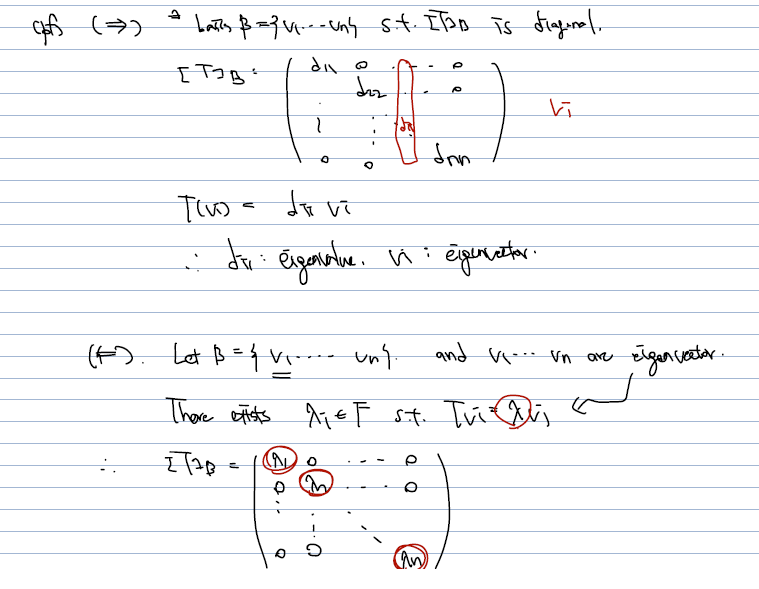 (pf) (⇒) ∃ basis β = {v1 ⋯ vn} s.t. [T]β is diagonal.
[T]β = ( d11 0 ⋯ 0
d22 ⋯ 0
⋮ ⋮ dii
0 0 dnn ) vi
T(vi) = dii vi
∴ dii : eigenvalue. vi : eigenvector.
(⇐). Let β = { v1 ⋯ vn }. and v1 ⋯ vn are eigenvector.
There exists λi ∈ F s.t. Tvi = λivi
∴ [T]β = ( λ1 0 ⋯ 0
0 λ2 ⋯ 0
⋮ ⋮ ⋱
0 0 λn )